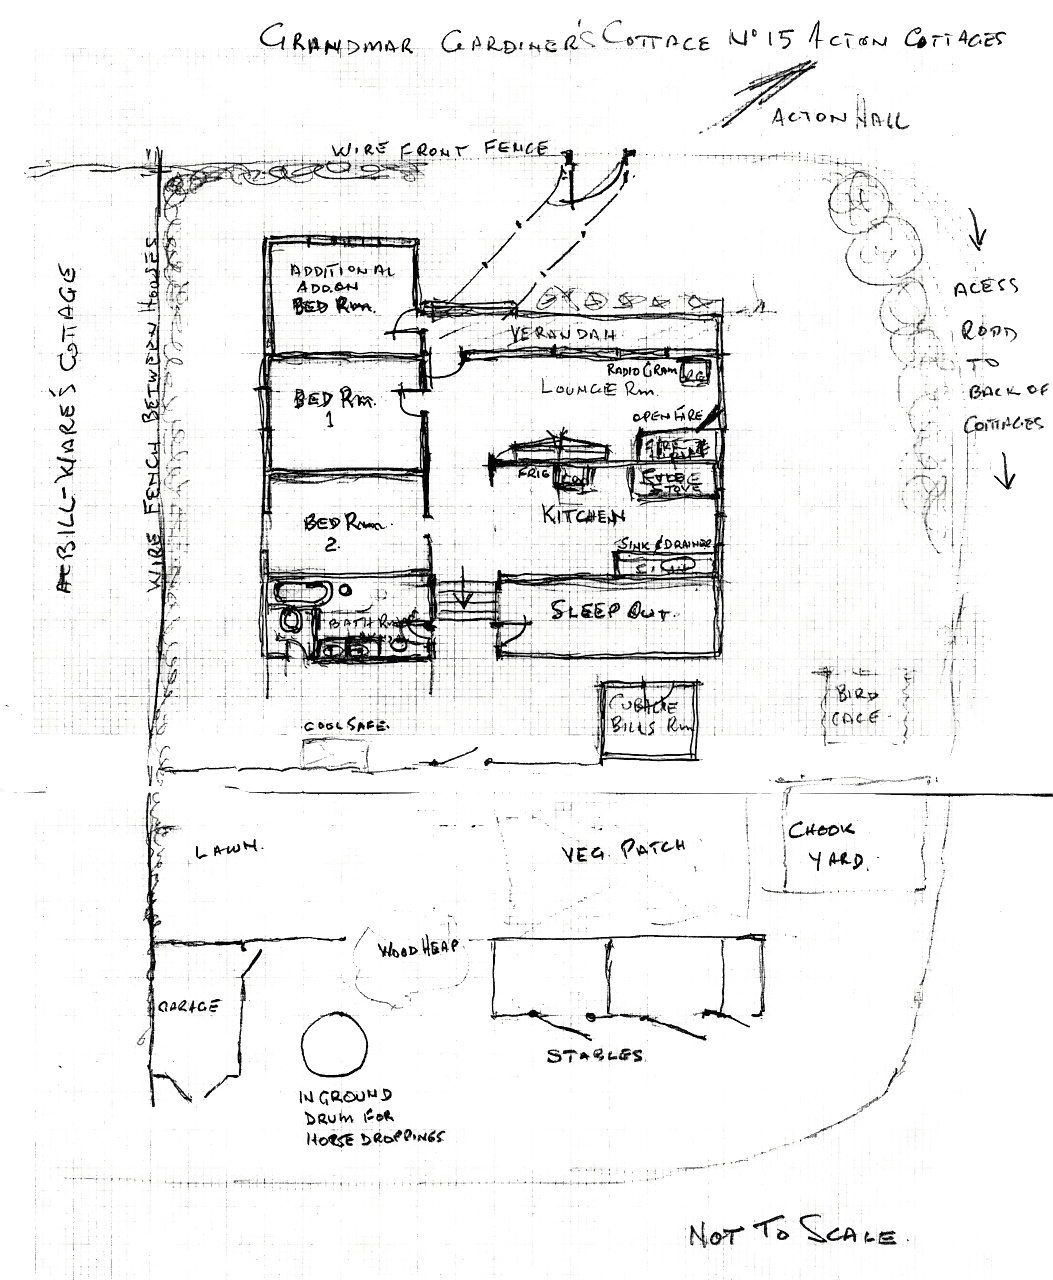 GRANDMAR GARDINER'S COTTAGE Nº 15 ACTON COTTAGES
ACTON HALL
WIRE FRONT FENCE
BILL-KIARE'S COTTAGE
WIRE FENCE BETWEEN HOUSES
ADDITIONAL
ADD.ON
BED Rm.
VERANDAH
RADIO GRAM
RG
LOUNGE Rm.
BED Rm.
1
OPEN FIRE
FIRE
FRIG
STOVE
KITCHEN
BED Rm.
2.
SINK & DRAINER
BATH Rm
SLEEP OUT.
ACESS
ROAD
TO
BACK OF
COTTAGES
COOL SAFE.
BILLS Rm
BIRD
CAGE
LAWN.
VEG. PATCH
CHOOK
YARD.
WOOD HEAP
GARAGE
STABLES
IN GROUND
DRUM FOR
HORSE DROPPINGS
NOT TO SCALE.